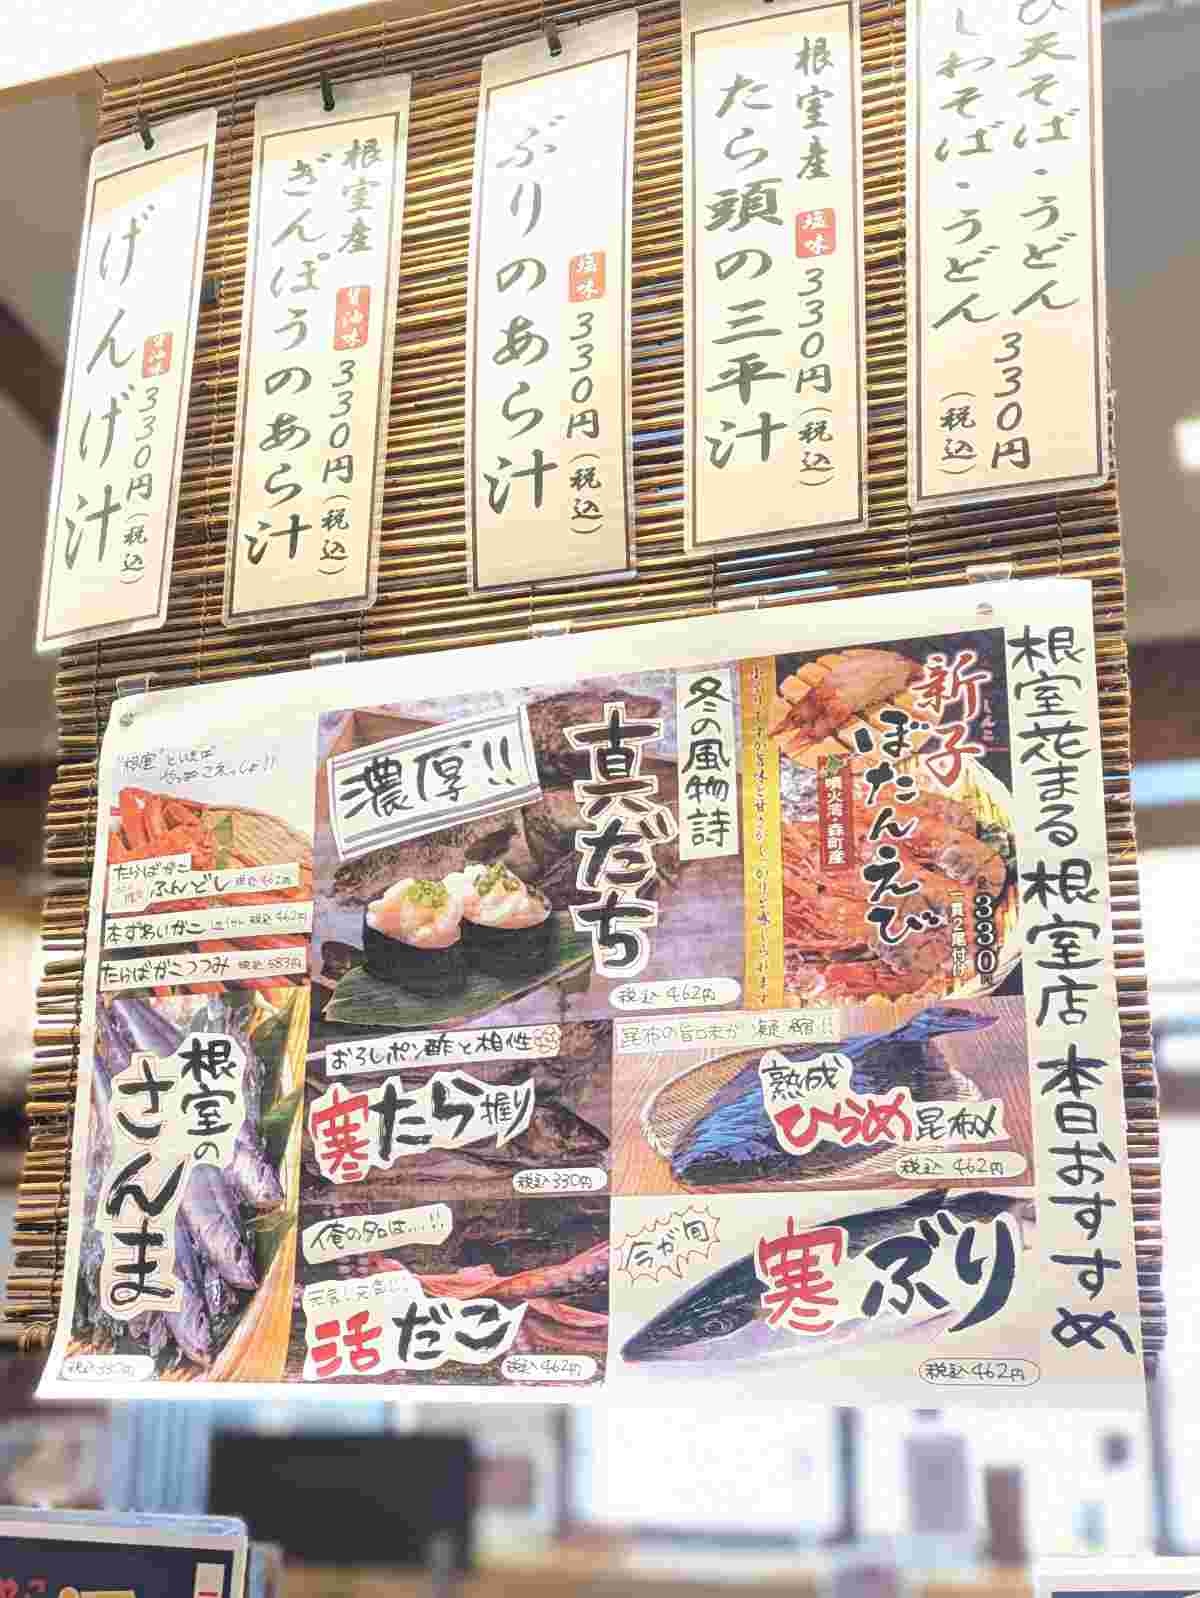 天そば・うどん
しわそば・うどん
330円
(税込)
根室産
塩味
330円(税込)
たら頭の三平汁
塩味
330円(税込)
ぶりのあら汁
根室産
醤油味
330円(税込)
ぎんぽうのあら汁
醤油味
330円(税込)
げんげ汁
根室花まる 根室店 本日おすすめ
新子
しんこ
ぼたんえび
噴火湾・森町産
330円
一貫2尾付け
冬の風物詩
真だち
濃厚!!
税込462円
"根室"といえば
たらばがこ
ふんどし
本ずわいがこ
税込462円
たらばがこつつみ
税込583円
根室の
さんま
税込330円
おろしポン酢と相性
寒たら握り
税込330円
昆布の旨味が凝縮!!
熟成
ひらめ昆布〆
税込462円
俺の名は…!!
活だこ
税込462円
今が旬
寒ぶり
税込462円